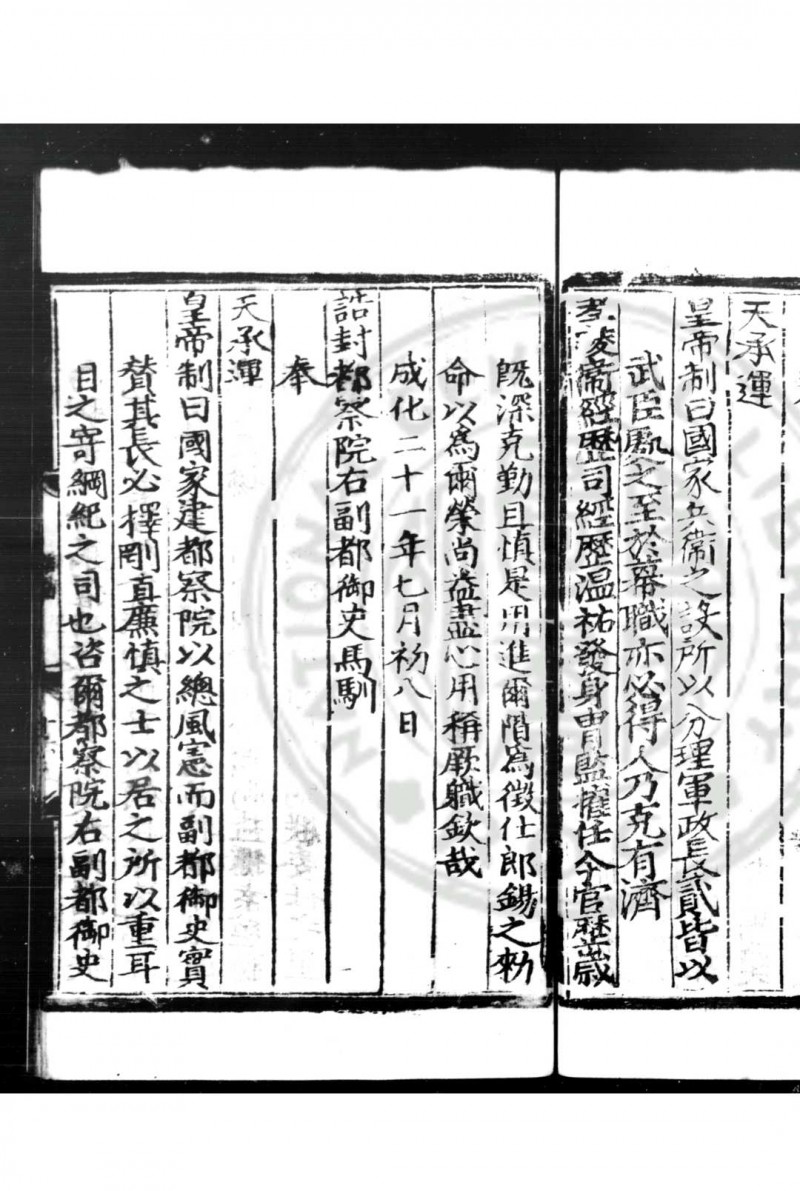 天承運
皇帝制曰國家兵衛之設所以分理軍政長貳皆以
武臣爲之至於幕職亦必得人乃克有濟
孝陵衛經歷司經歷温祐發身胄監擢任今官歷歲
既深克勤且慎是用進爾階爲徵仕郎錫之勑
命以爲爾榮尚益盡心用稱厥職欽哉
成化二十一年七月初八日
誥封都察院右副都御史馬馴
奉
天承運
皇帝制曰國家建都察院以總風憲而副都御史實
賛其長必擇剛直廉慎之士以居之所以重耳
目之寄綱紀之司也咨爾都察院右副都御史